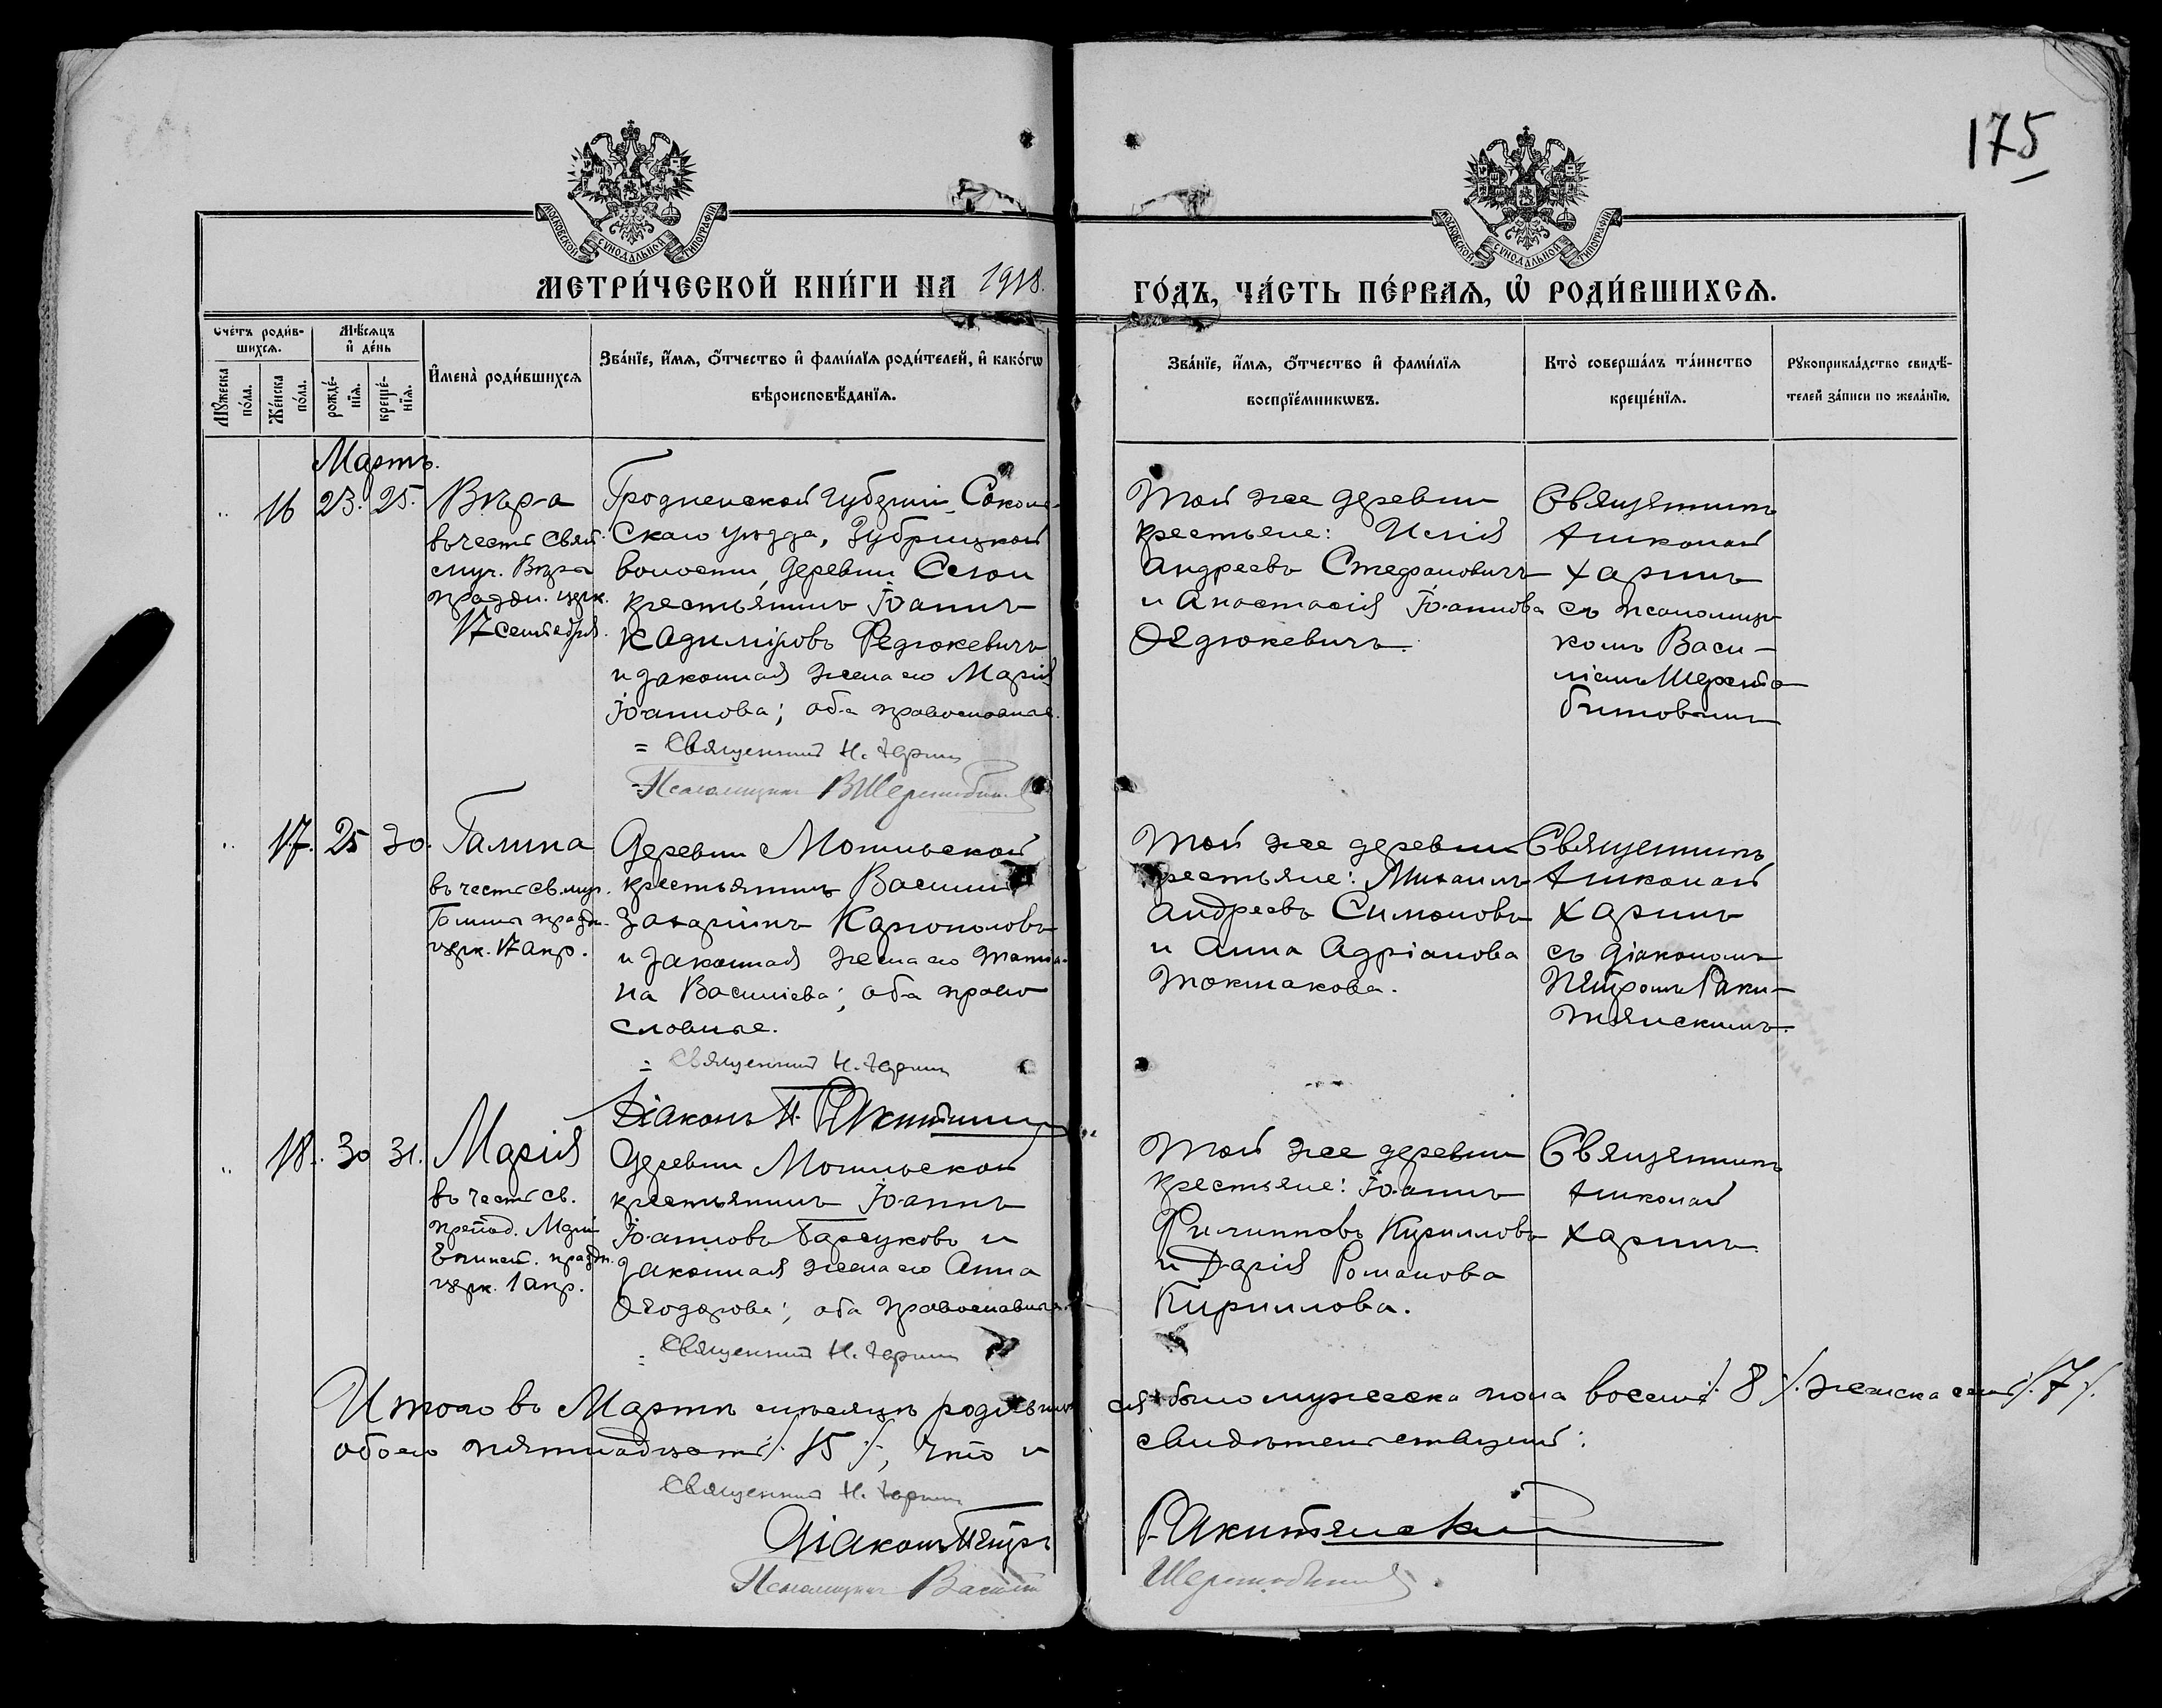 175
МОСКОВСКОЙ СѴНОДАЛЬНОЙ ТИПОГРАФІИ
МОСКОВСКОЙ СѴНОДАЛЬНОЙ ТИПОГРАФІИ
МЕТРИ́ЧЕСКОЙ КНИ́ГИ НА 1918. ГО́ДЪ, ЧА́СТЬ ПЕ́РВАЯ, Ѡ РОДИ́ВШИХСЯ.
Сче́тъ роди́в-
шихся.
Мѣ́сяцъ
и де́нь
Му́жеска
по́ла.
Же́нска
по́ла.
рожде́-
нія.
креще́-
нія.
Имена̀ роди́вшихся
Зва́ніе, и́мя, о́тчество и фами́лія роди́телей, и како́гѡ
вѣроисповѣ́данія.
Зва́ніе, и́мя, о́тчество и фами́лія
воспріе́мникѡвъ.
Кто̀ соверша́лъ та́инство
креще́нія.
Рукоприкла́дство свидѣ́-
телей за́писи по жела́нію.
Мартъ.
16 23. 25. Вѣра
въ честь свят.
муч. Вѣра
праздн. церк.
17 сентября.
Гродненской губерніи, Соколь-
скаго уѣзда, Зубрицкой
волости, деревни
крестьянинъ Іоаннъ
Федюкевичъ
и законная жена его Марія
Іоаннова; оба православные.
= Священникъ Н. Харинъ
= Псаломщикъ В Шерстобитовъ
Той же деревни
крестьяне: Илія
Андреевъ Стефановичъ
и Анастасія Іоаннова
Федюкевичъ.
Священникъ
Николай
Харинъ
съ псаломщи-
комъ Васи-
ліемъ Шерсто-
битовымъ
17. 25 30. Галина
въ честь св. муч.
Галины праздн.
церк. 17 апр.
Деревни Мотильской
крестьянинъ Василій
Захаріинъ Каргополовъ
и законная жена его Татіа-
на Василіева; оба право
славные.
= Священникъ Н. Харинъ
Діаконъ П. Ракитянскій
Той же деревни
крестьяне: Михаилъ
Андреевъ Симоновъ
и Анна Адріанова
Токмакова.
Священникъ
Николай
Харинъ
съ діакономъ
Петромъ Раки-
тянскимъ.
18. 30 31. Марія
въ честь св.
препод. Марія
Египет. праздн.
церк. 1 апр.
Деревни Мотильской
крестьянинъ Іоаннъ
Іоанновъ Барсуковъ и
законная жена его Анна
Ѳеодорова; оба православные.
= Священникъ Н. Харинъ
Той же деревни
крестьяне: Іоаннъ
Филипповъ Кирилловъ
и Дарія Романова
Кириллова.
Священникъ
Николай
Харинъ.
Итого въ Мартѣ мѣсяцѣ родивших ся было мужеска пола восемь /. 8 /. женска семь /. 7 /.
обоего пятнадцать /. 15 /., что и свидѣтельствуемъ:
Священникъ Н. Харинъ
Діаконъ Петръ Ракитянскій
Псаломщикъ Василій Шерстобитовъ.